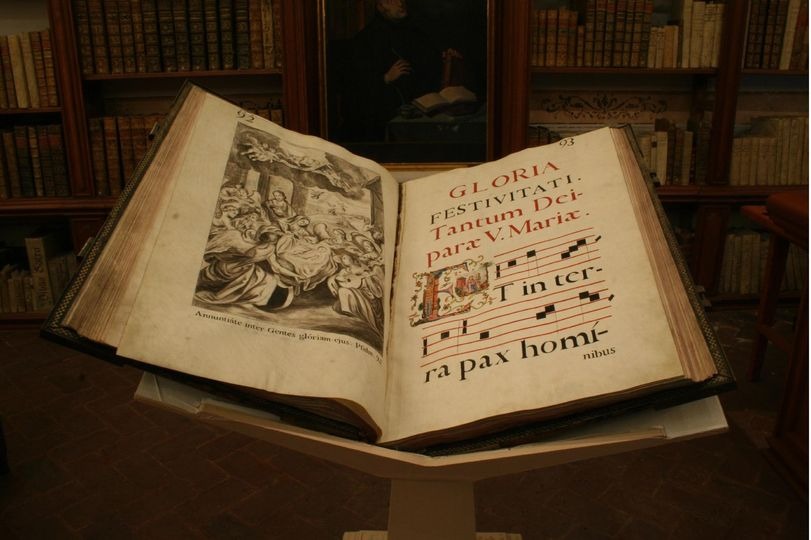 92
Annuntiáte inter Gentes glóriam ejus. Psalm.
93
GLORIA
FESTIVITATI.
Tantum Dei-
paræ V. Mariæ.
ET in ter-
ra pax homí-
nibus